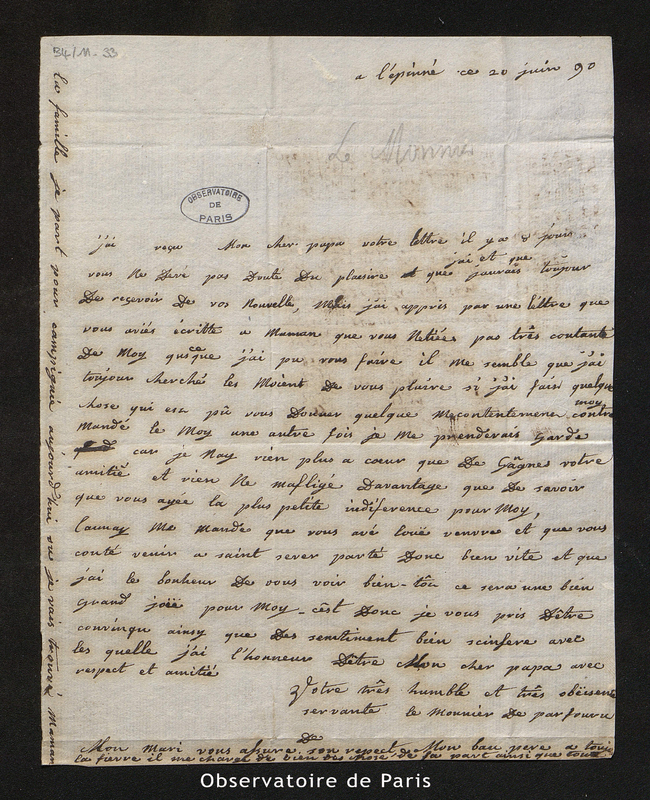 B4/11-33
a l'épinné ce 20 juin 90
Le Monnier
OBSERVATOIRE
DE
PARIS
j'ai reçu Mon cher papa votre lettre il y a 8 jours
vous Ne Devé pas Doute Du plaisire que j'ai et que j'aurais toujour
De reçevoir De vos Nouvelle, Mais j'ai appris par une lettre que
vous aviés écritte a Maman que vous Netiés pas très contante
De Moy qu'es ce que j'ai pu vous faire il me semble que j'ai
toujour cherché les Moient De vous plaire si j'ai fais quelque
chose qui est pû vous Douner quelque Mecontentement contre moy
Mandé le Moy une autre fois je Me prenderais Garde
car je Nay rien plus a cœur que De Gâgner votre
amitié et rien Ne maflige Davantage que De savoir
que vous ayée la plus petite indiference pour Moy,
launay Me Mande que vous avé loüé venvre et que vous
conté venir a saint sever parté Donc bien vite et que
j'ai le bonheur De vous voir bien-tôu ce sera une bien
grand joëë pour Moy_ cêst Donc je vous pris D'être
convinqu ainsy que Des sentiment bien scinsere avec
les quelle j'ai l'honneur D'être Mon cher papa avec
respect et amitié
Votre très humble et très obéisente
servante le Monnier De parfouru
Mon Mari vous assure De son respect Mon bau pere a toujour
la fievre il me charge De bien Des chose De sa part ainsi que toute
la famille je part pour campigné aujourd'hui ou je vais trouvé Maman
Observatoire de Paris